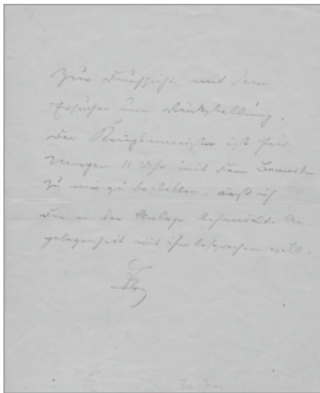 Zur Durchsicht mit dem
Ersuchen um Rückstellung.
Der Kriegsminister ist für
Morgen 11 Uhr mit dem Bemerken
zu mir zu bestellen, daß ich
die in der Anlage behandelte An
gelegenheit mit ihm besprechen will.